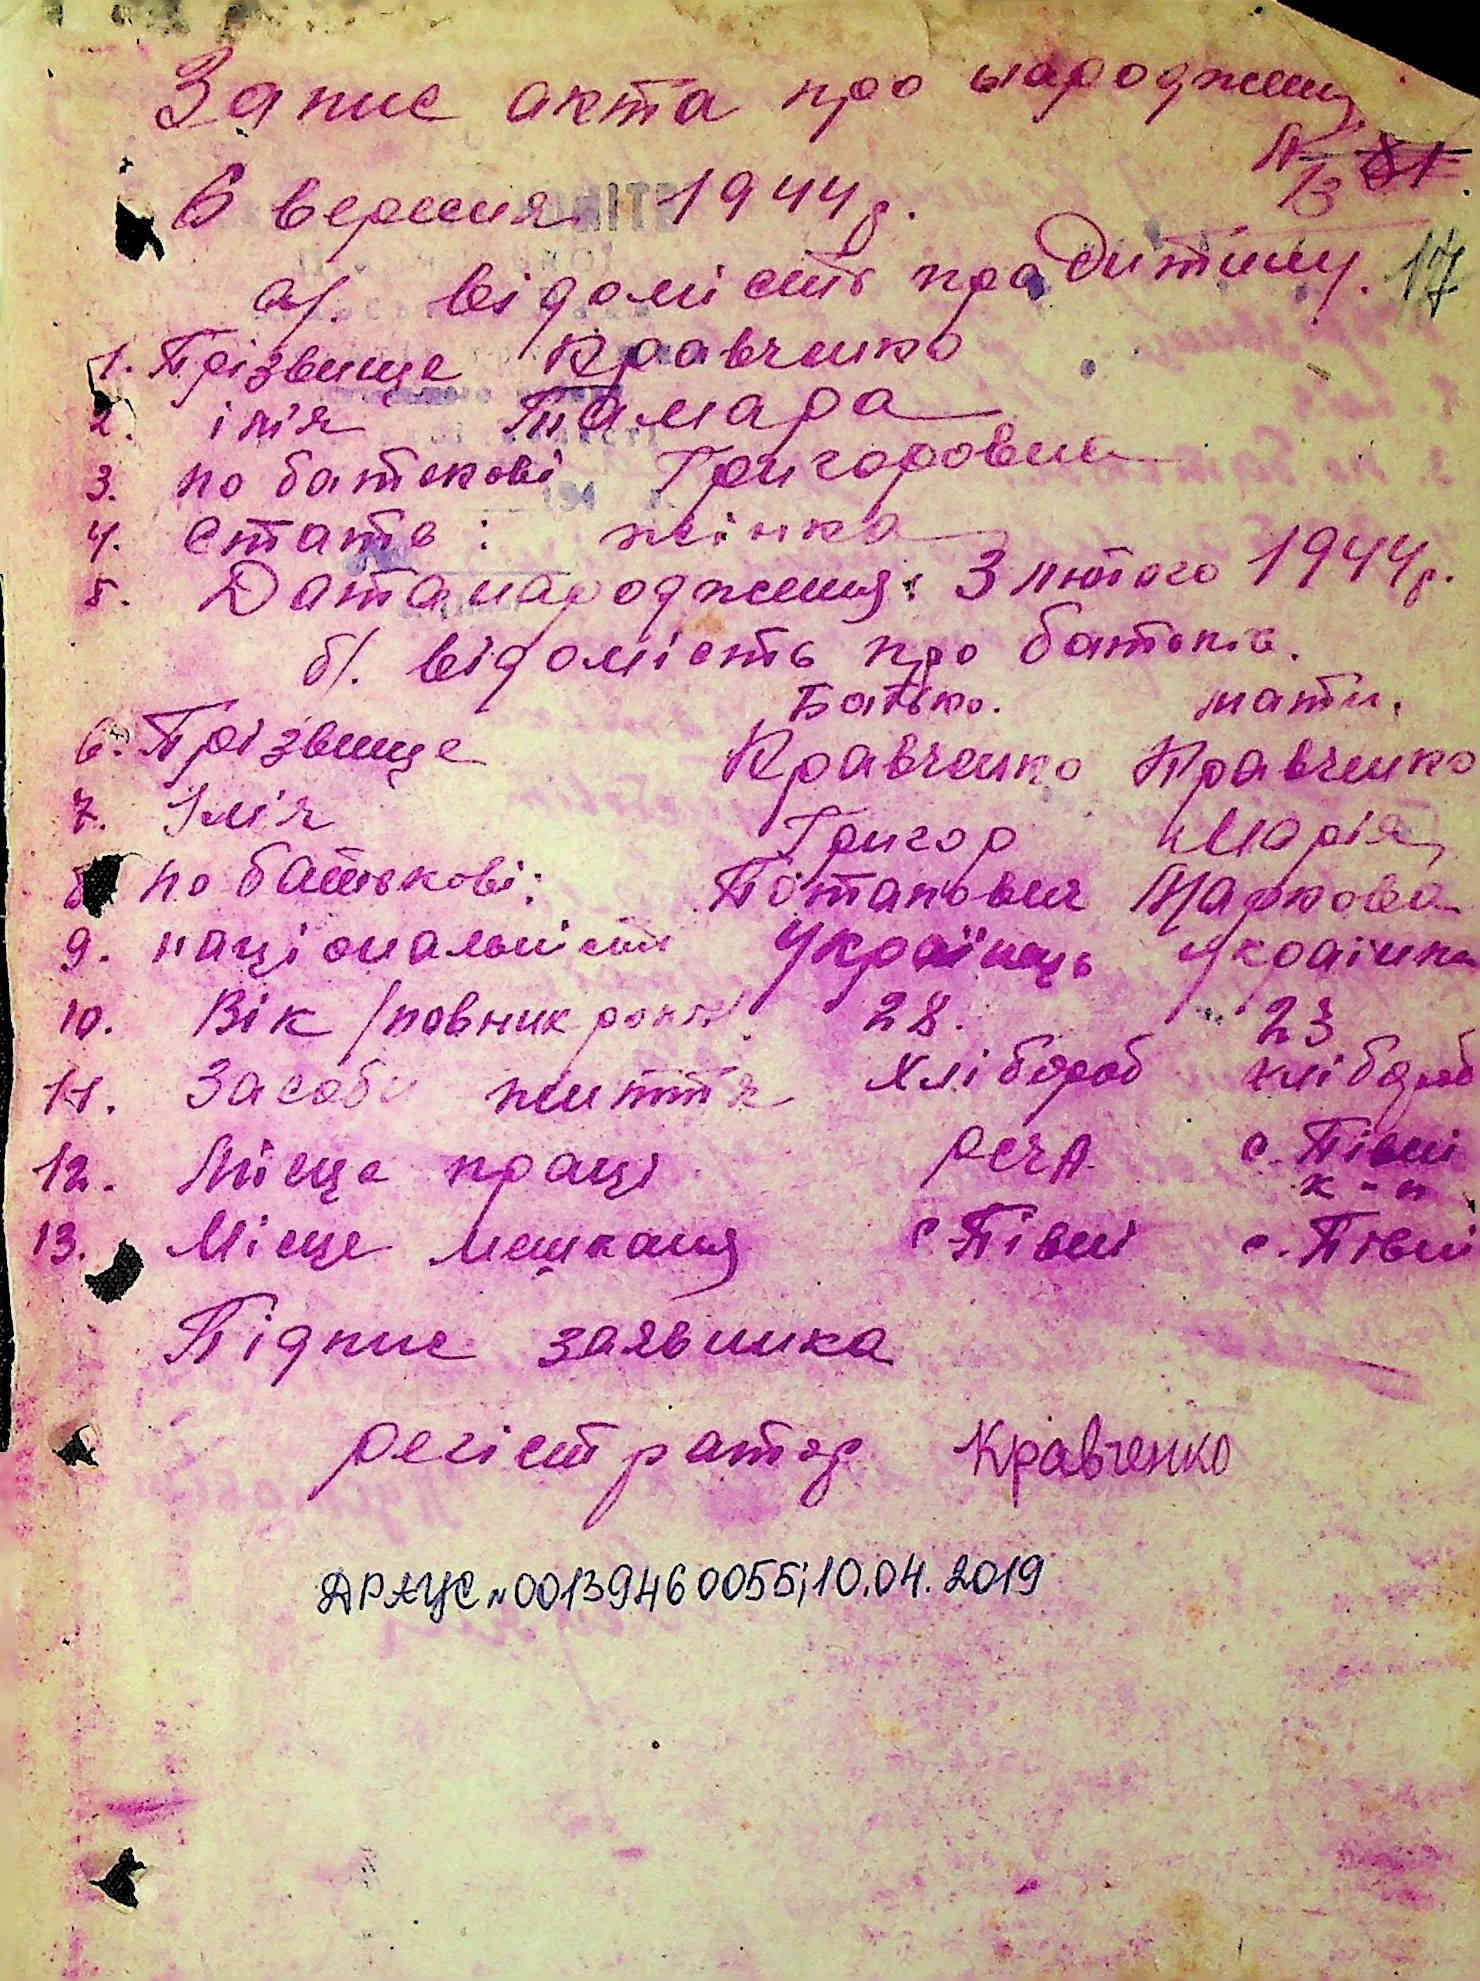 Запис акта про народження
№ 13 81
6 вересня 1944 р.
17
а/. відомість про дитину.
1. Прізвище Кравченко
2. ім'я Тамара
3. по батькові Григоровна
4. стать: жінка
5. Дата народження: 3 лютого 1944 р.
б/. відомість про батьків.
Батько. мати.
6. Прізвище Кравченко Кравченко
7. Ім'я Григор Марія
8 по батькові: Потапович Маркова
9. національність Українець Українка
10. Вік /повних років/ 28. 23
11. Засоби життя Хлібороб хлібороб
12. Місце праці РСЧА с. Півні
к-п
13. Місце мешканя с. Півні с. Півні
Підпис заявника
регістратор Кравченко
ДРАЦС №00139460055; 10.04.2019